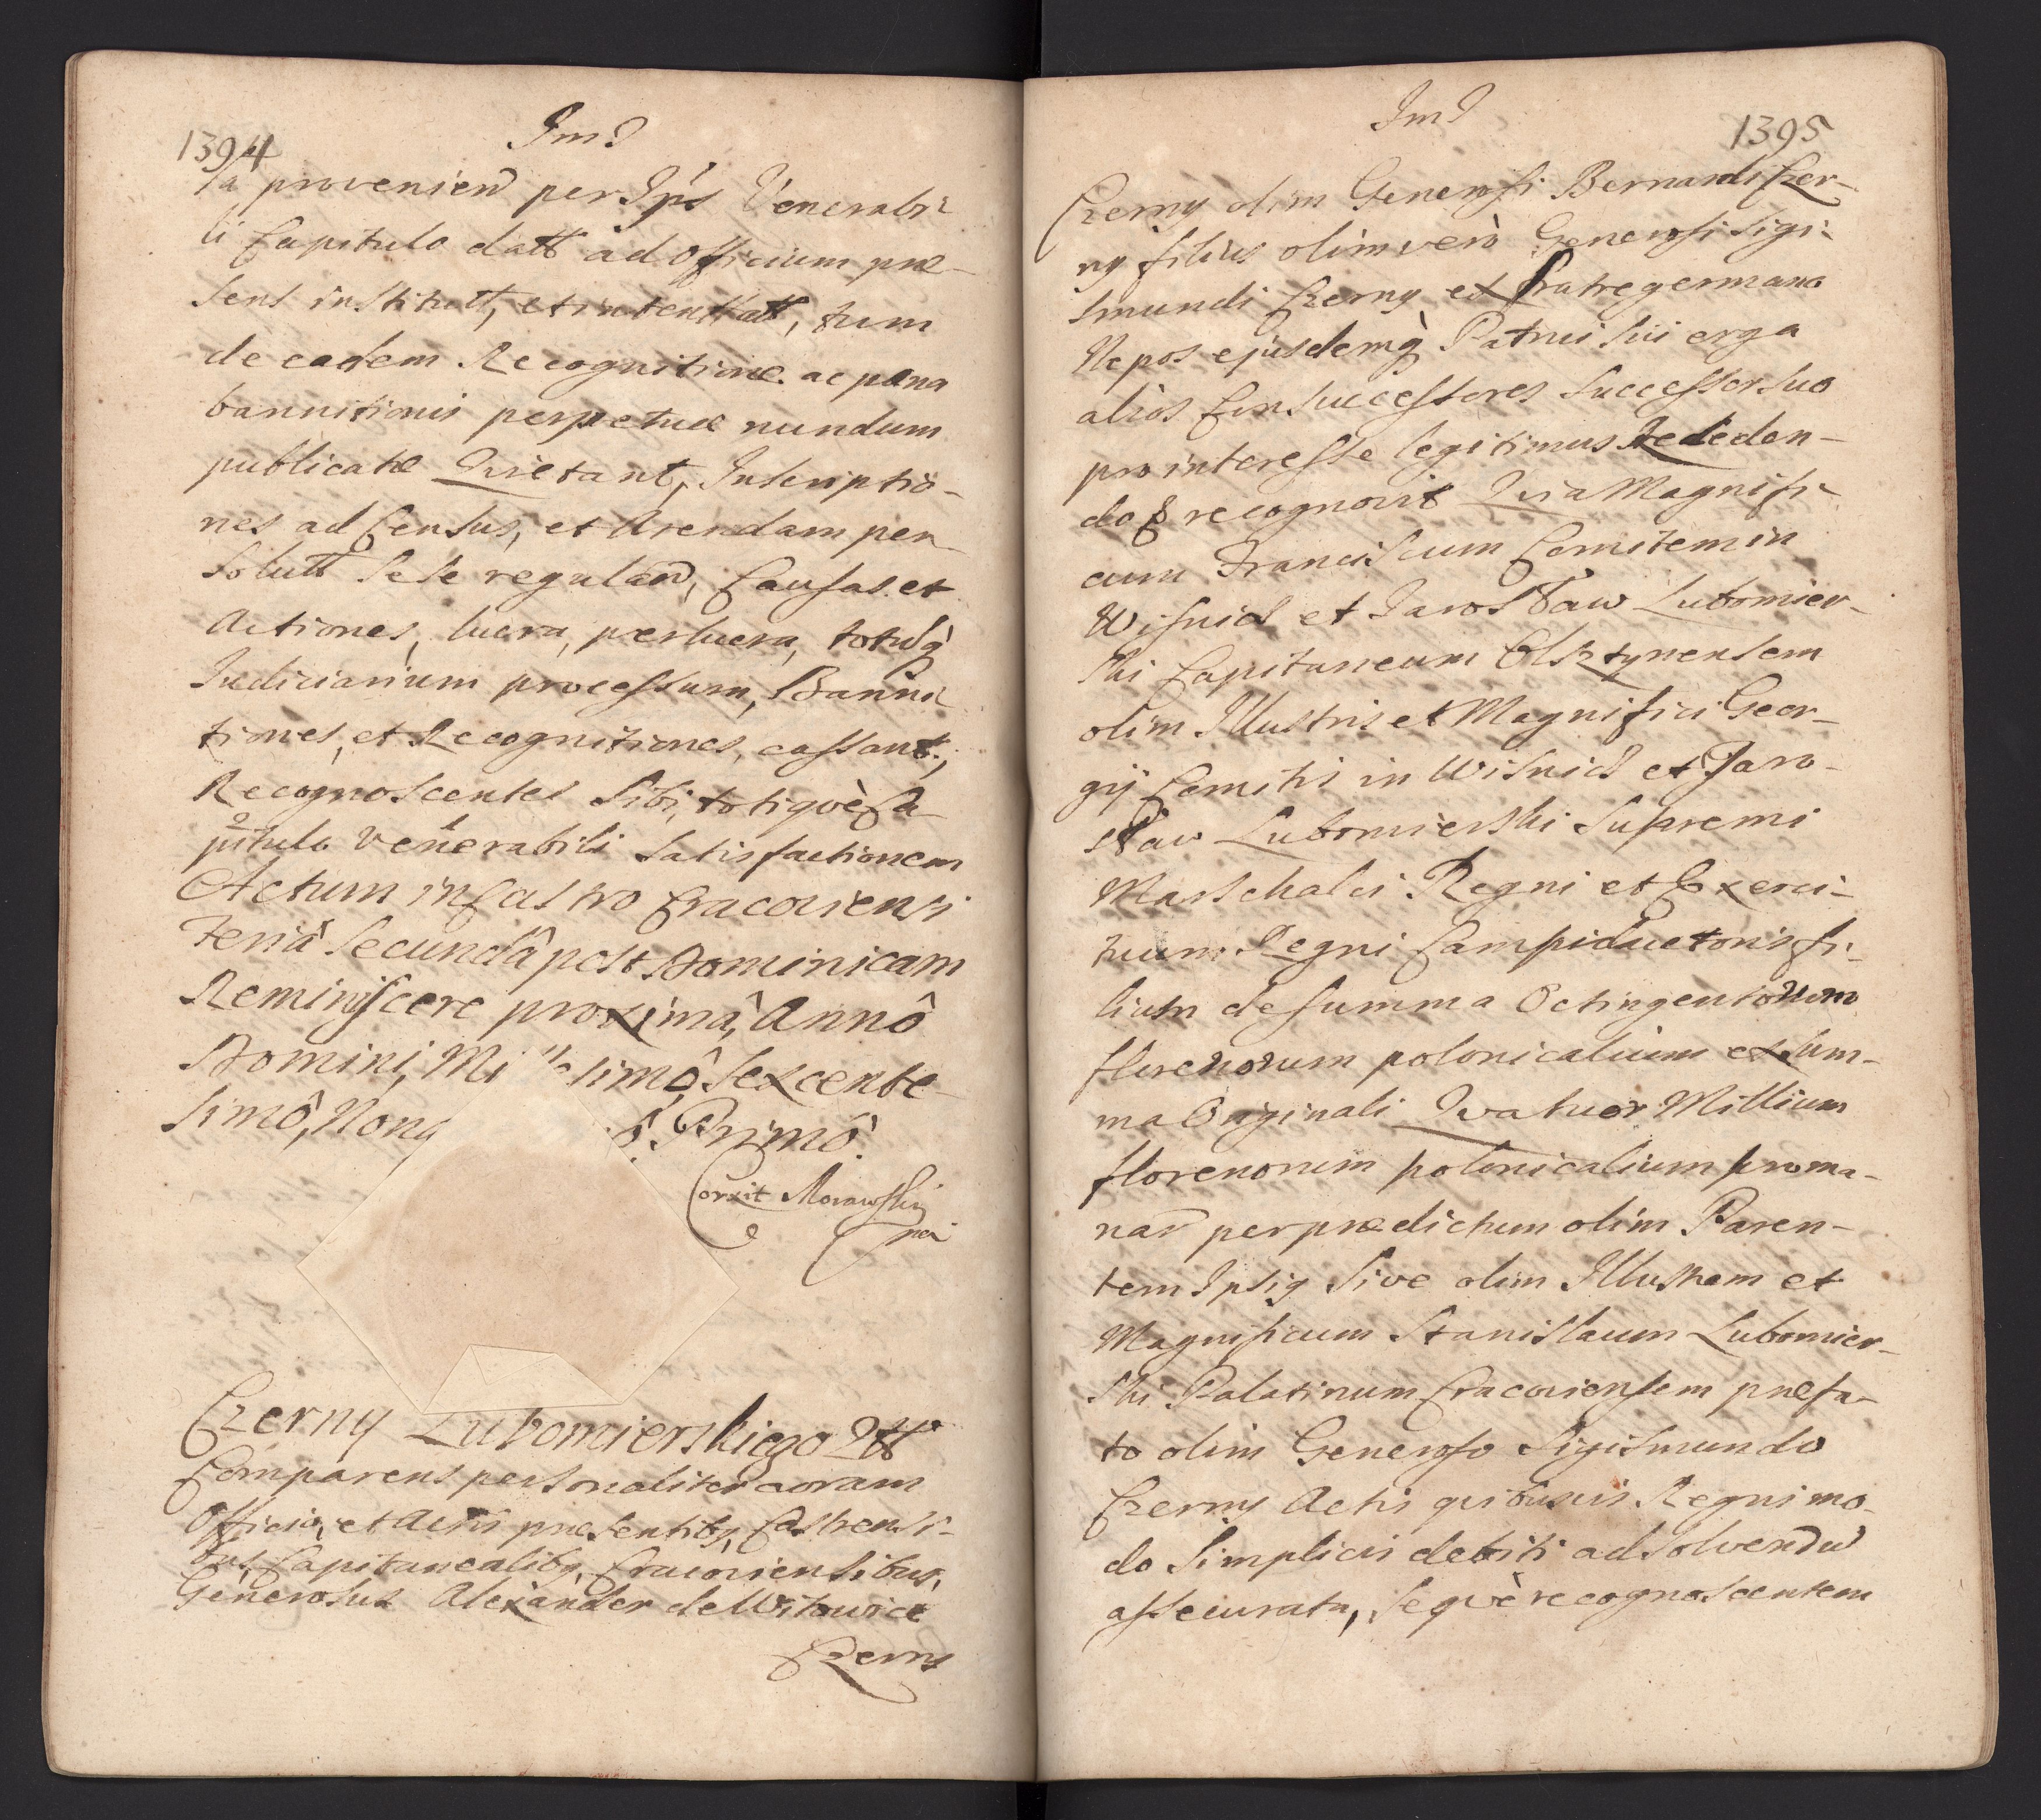 1394
Im̃
ta provenień per Ip̃s Venerabi-
li Capitulo datt ad Officium prae-
sens institutt, et intentatt, tum
de eadem Recognitione ac paena
bannitionis perpetuae nundum
publicatae Quietant, Inscriptio-
nes ad Census, et Arendam per-
solutt sese regulań, Causas et
Actiones, lucra, perlucra, totumq̀
Judiciarium processum, Banni-
tiones, et Recognitiones, cassant,
Recognoscentes sibi, totiquè Ca-
pitulo Venerabili satisfactionem
Actum in Castro Cracoviensi
Feriâ Secundâ post Dominicam
Reminiscere proximâ, Annô
Domini, Mi simô, Sexcente-
simô, Nona ô Primô.
Corxit Morawski
mp
Czerny Lubomierskiego Qtt
Comparens personaliter coram
Officio, et Actis praesentibq, Castrensi-
bus, Capitanealibq, Cracoviensibus,
Generosus Alexander de Witowice
Czerny
Im̃
1395
Czerny olim Generosi Bernardi Czer-
ny filius olim verò Generosi Sigi-
smundi Czerny ex fratre germano
Nepos ejusdemq̀ Patrui sui erga
alios Consuccessores Successor suo
pro interesse legitimus Rededen-
do & recognovit Quia Magnifi-
cum Franciscum Comitem in
Wisnicz et Jarosław Lubomier-
ski Capitaneum Olsztynensem
olim Illustris et Magnifici Geor-
gij Comitis in Wisnicz et Jaro-
sław Lubomierski Supremi
Marschalci Regni et Exerci-
tuum Regni Campiductoris fi-
lium de summa Octingentorum
florenorum polonicalium ex sum-
ma Originali Quatuor Millium
florenorum polonicalium proma-
nań per praedictum olim Paren-
tem Ipsiq sive olim Illustrem et
Magnificum Stanislaum Lubomier-
ski Palatinum Cracoviensem praefa-
to olim Generoso Sigismundo
Czerny Actis quibusvis Regni mo-
do simplicis debiti ad solvendũ
assecurata, sequè recognoscentem